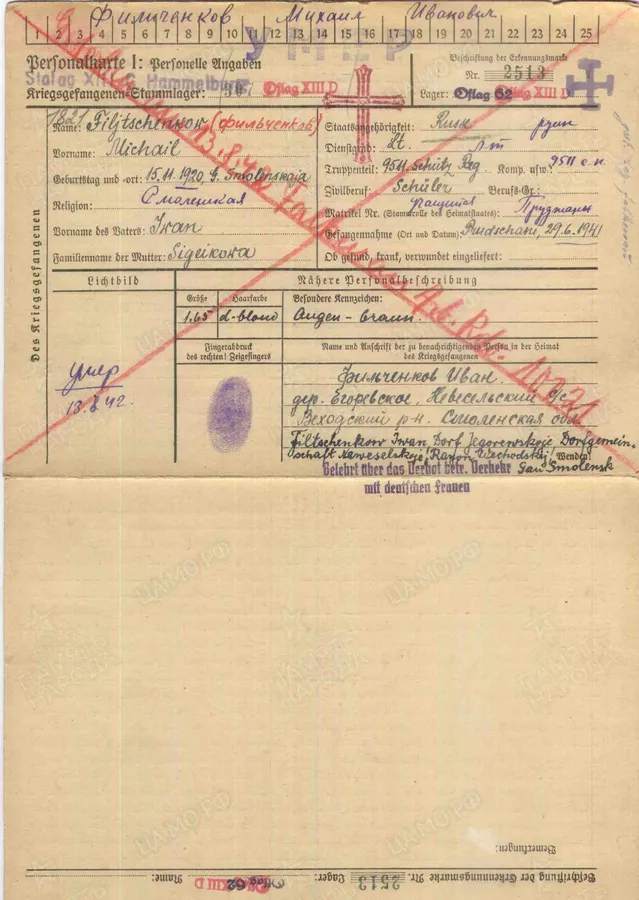 Фильченков Михаил Иванович
1 2 3 4 5 6 7 8 9 10 11 12 13 14 15 16 17 18 19 20 21 22 23 24 25
УМЕР
Personalkarte I: Personelle Angaben
Beschriftung der Erkennungsmarke
Stalag XIII C Hammelburg
Nr. 2513
Kriegsgefangenen-Stammlager: Oflag XIII D
Lager: Oflag 62 Oflag XIII D
1821
Des Kriegsgefangenen
Name: Filjtschenkow (Фильченков)
Staatsangehörigkeit: Russ
Vorname: Michail
Dienstgrad: Lt.
Geburtstag und -ort: 15.11.1920, G. Smolenskaja
Truppenteil: 954 Schütz Reg. Komp. usw.:
Religion: Смоленская
Zivilberuf: Schüler Berufs-Gr.:
Matrikel Nr. (Stammrolle des Heimatstaates): Пружаны
Vorname des Vaters: Iwan
Gefangennahme (Ort und Datum): Pruschani, 29.6.1941
Familienname der Mutter: Sigeikowa
Ob gesund, krank, verwundet eingeliefert:
Lichtbild
Nähere Personalbeschreibung
Größe Haarfarbe Besondere Kennzeichen:
1.65 d-blond Augen-braun.
Fingerabdruck
des rechten! Zeigefingers
Name und Anschrift der zu benachrichtigenden Person in der Heimat
des Kriegsgefangenen
умер
13.8.42.
Фильченков Иван.
дер. Егоревское, Невесельский с/с
Веходский р-н. Смоленская обл.
Filtschenkow Iwan Dorf Jegorewskoje Dorfgemein-
schaft Naweselskoje, Rayon Wechodskij
Wenden!
Gau Smolensk
Belehrt über das Verbot betr. Verkehr
mit deutschen Frauen
Bemerkungen:
Beschriftung der Erkennungsmarke Nr. 2513 Lager: Oflag 62 Oflag XIII D Name:
ЦАМО РФ
ПАМЯТЬ НАРОДА